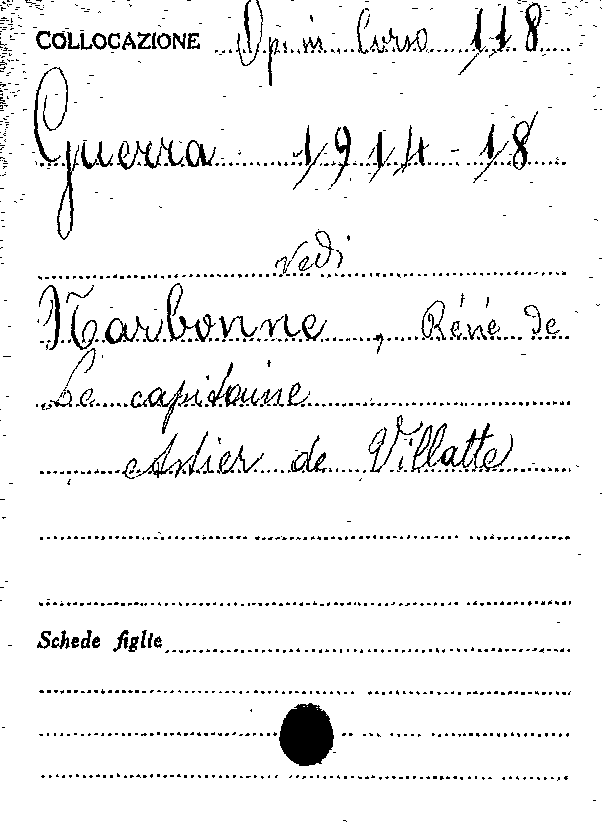 COLLOCAZIONE Op. in Corso 118
Guerra 1914-18
vedi
Narbonne, Réné de
Le capitaine
Astier de Villatte
Schede figlie